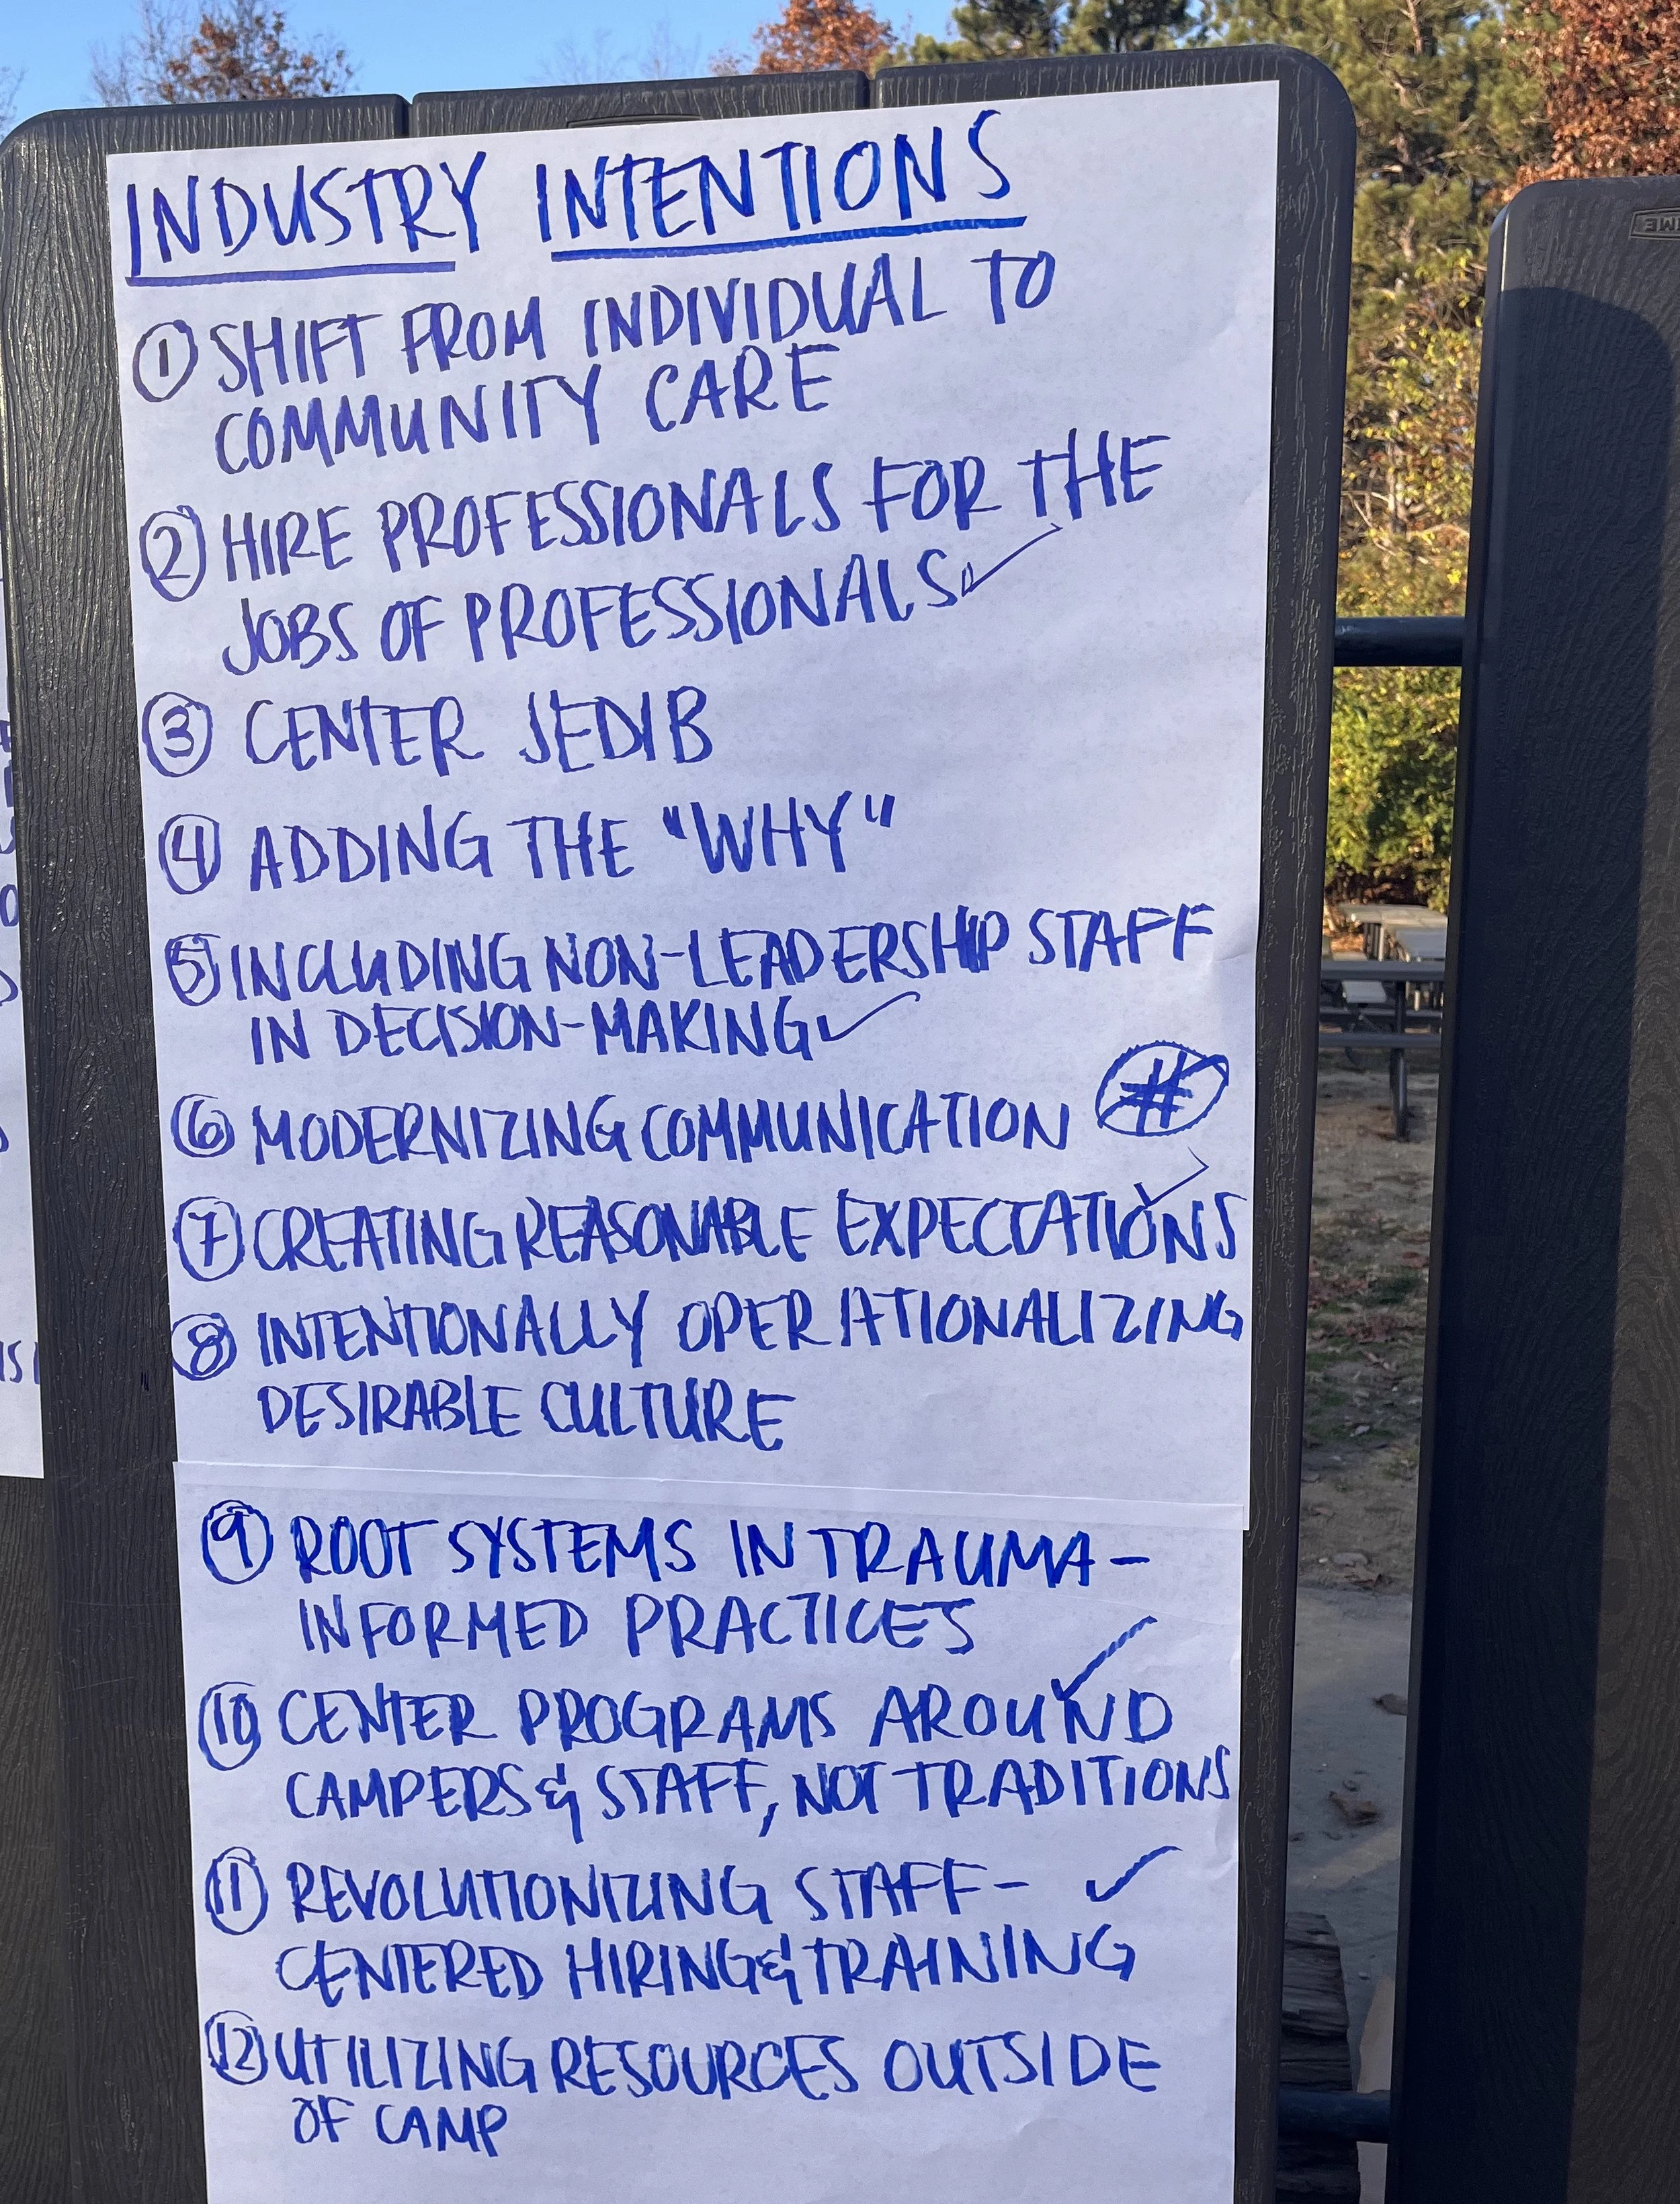 INDUSTRY INTENTIONS
① SHIFT FROM INDIVIDUAL TO
COMMUNITY CARE
② HIRE PROFESSIONALS FOR THE
JOBS OF PROFESSIONALS ✓
③ CENTER JEDIB
④ ADDING THE "WHY"
⑤ INCLUDING NON-LEADERSHIP STAFF
IN DECISION-MAKING ✓
⑥ MODERNIZING COMMUNICATION #
⑦ CREATING REASONABLE EXPECTATIONS ✓
⑧ INTENTIONALLY OPERATIONALIZING
DESIRABLE CULTURE
⑨ ROOT SYSTEMS IN TRAUMA-
INFORMED PRACTICES
⑩ CENTER PROGRAMS AROUND ✓
CAMPERS & STAFF, NOT TRADITIONS
⑪ REVOLUTIONIZING STAFF- ✓
CENTERED HIRING & TRAINING
⑫ UTILIZING RESOURCES OUTSIDE
OF CAMP